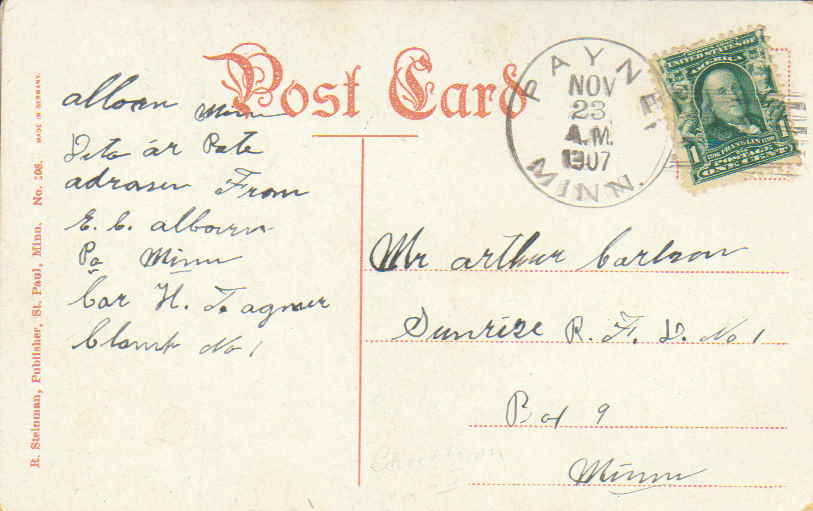 Post Card
PAYNE,
NOV
23
A.M.
1907
MINN.
UNITED STATES OF
AMERICA
1706 FRANKLIN 1790
POSTAGE
ONE CENT
1 1
alboen Minn
Deta är Pete
adrasen From
E. C. alboen
Po Minn
Car H. Wagner
No 1
Mr arthur Carlson
Sunrise R. F. D. No 1
Box 9
Minn
R. Steinman, Publisher, St. Paul, Minn. No. 208. MADE IN GERMANY.